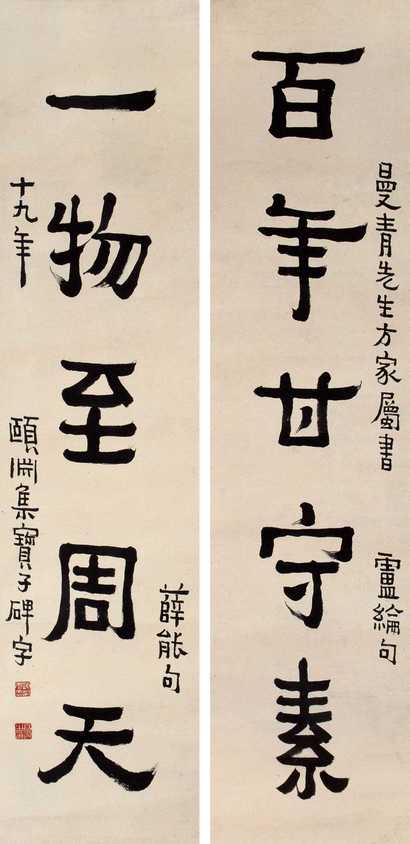 百年甘守素
曼青先生方家屬書
盧綸句
一物至周天
薛能句
十九年
頤淵集寶子碑字